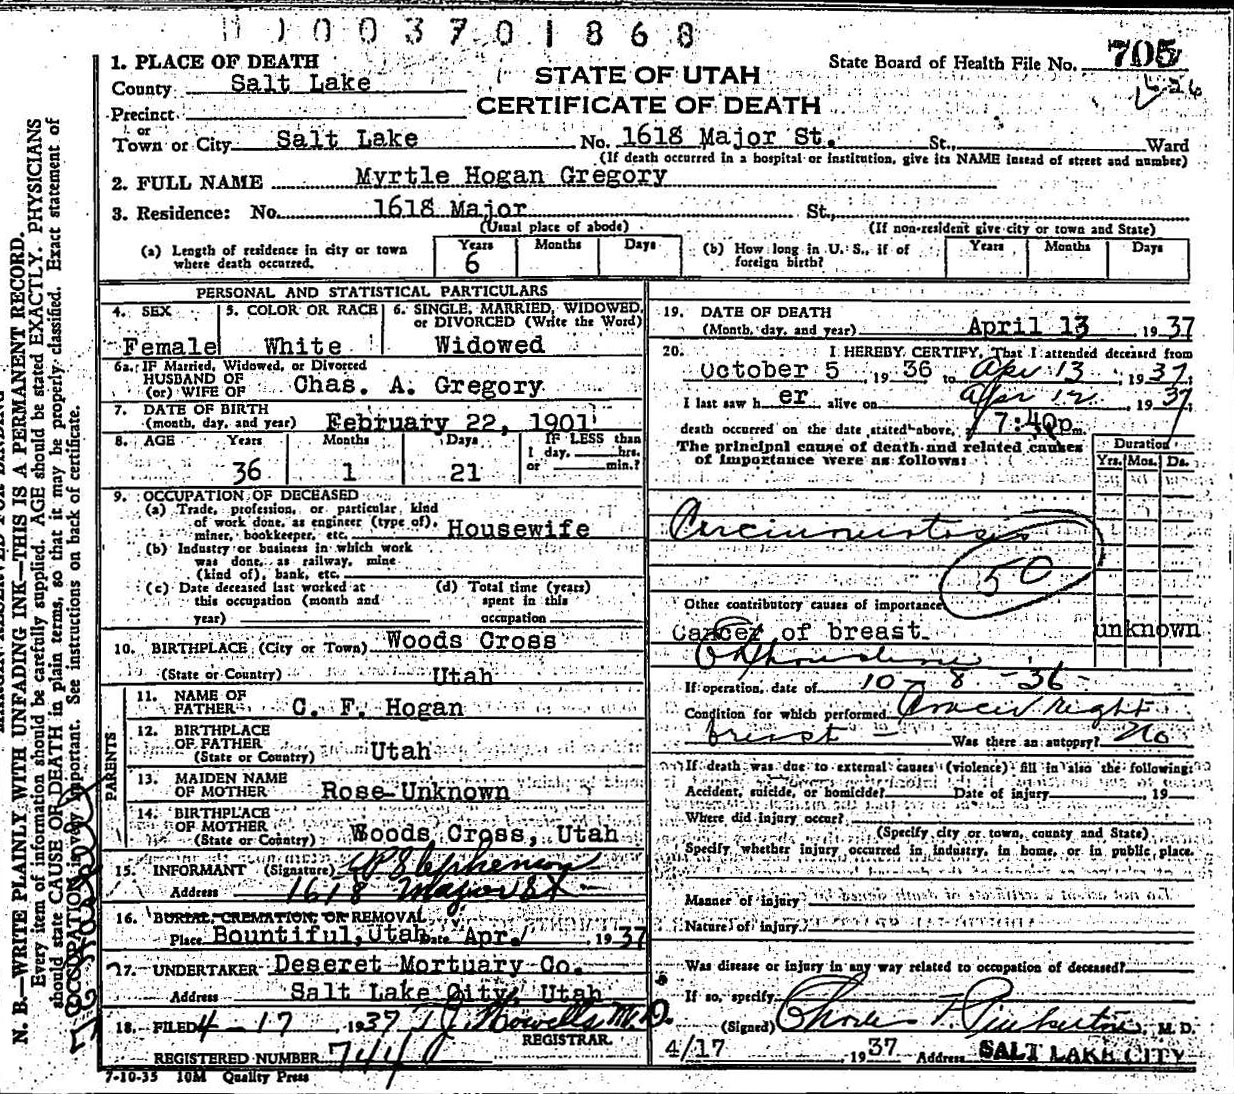 1003701868
1. PLACE OF DEATH
County Salt Lake
STATE OF UTAH
CERTIFICATE OF DEATH
State Board of Health File No. 705
Precinct
or
Town or City Salt Lake No. 1618 Major St. St., Ward
(If death occurred in a hospital or institution, give its NAME instead of street and number)
2. FULL NAME Myrtle Hogan Gregory
3. Residence: No. 1618 Major St.,
(Usual place of abode) (If non-resident give city or town and State)
(a) Length of residence in city or town where death occurred. Years 6 Months Days
(b) How long in U. S., if of foreign birth? Years Months Days
PERSONAL AND STATISTICAL PARTICULARS
4. SEX Female
5. COLOR OR RACE White
6. SINGLE, MARRIED, WIDOWED, or DIVORCED (Write the Word) Widowed
6a. IF Married, Widowed, or Divorced
HUSBAND OF
(or) WIFE OF Chas. A. Gregory
7. DATE OF BIRTH
(month, day, and year) February 22, 1901
8. AGE Years 36 Months 1 Days 21 IF LESS than 1 day, hrs. or min.?
9. OCCUPATION OF DECEASED
(a) Trade, profession, or particular, kind
of work done, as engineer (type of),
miner, bookkeeper, etc. Housewife
(b) Industry or business in which work
was done, as railway, mine
(kind of), bank, etc.
(c) Date deceased last worked at this occupation (month and year)
(d) Total time (years) spent in this occupation
10. BIRTHPLACE (City or Town) Woods Cross
(State or Country) Utah
PARENTS
11. NAME OF FATHER C. F. Hogan
12. BIRTHPLACE OF FATHER (State or Country) Utah
13. MAIDEN NAME OF MOTHER Rose-Unknown
14. BIRTHPLACE OF MOTHER (State or Country) Woods Cross, Utah
15. INFORMANT (Signature) Stephenson
Address 1618 Major St
16. BURIAL, CREMATION, OR REMOVAL
Place Bountiful, Utah Date Apr. 1937
17. UNDERTAKER Deseret Mortuary Co.
Address Salt Lake City, Utah
18. FILED 4-17 1937 T J Howells M.D.
REGISTRAR.
REGISTERED NUMBER 744
7-10-35 10M Quality Press
19. DATE OF DEATH
(Month, day, and year) April 13, 1937
20. I HEREBY CERTIFY, That I attended deceased from
October 5, 1936 to Apr 13, 1937,
I last saw her alive on Apr 12, 1937,
death occurred on the date stated above, 7:40p m.
The principal cause of death and related causes of importance were as follows:
Duration
Yrs. Mos. Ds.
Carcinomatosis
50
Other contributory causes of importance
Cancer of breast unknown
If operation, date of 10-8-36-
Condition for which performed Cancer right
breast - Was there an autopsy? No
If death was due to external causes (violence) fill in also the following:
Accident, suicide, or homicide? Date of injury 19
Where did injury occur?
(Specify city or town, county and State)
Specify whether injury occurred in industry, in home, or in public place.
Manner of injury
Nature of injury
Was disease or injury in any way related to occupation of deceased?
If so, specify
(Signed) Charles F. Pinkerton, M. D.
4/17 1937 Address SALT LAKE CITY
N. B.—WRITE PLAINLY, WITH UNFADING INK—THIS IS A PERMANENT RECORD.
Every item of information should be carefully supplied. AGE should be stated EXACTLY. PHYSICIANS
should state CAUSE OF DEATH in plain terms, so that it may be properly classified. Exact statement of
OCCUPATION is very important. See instructions on back of certificate.